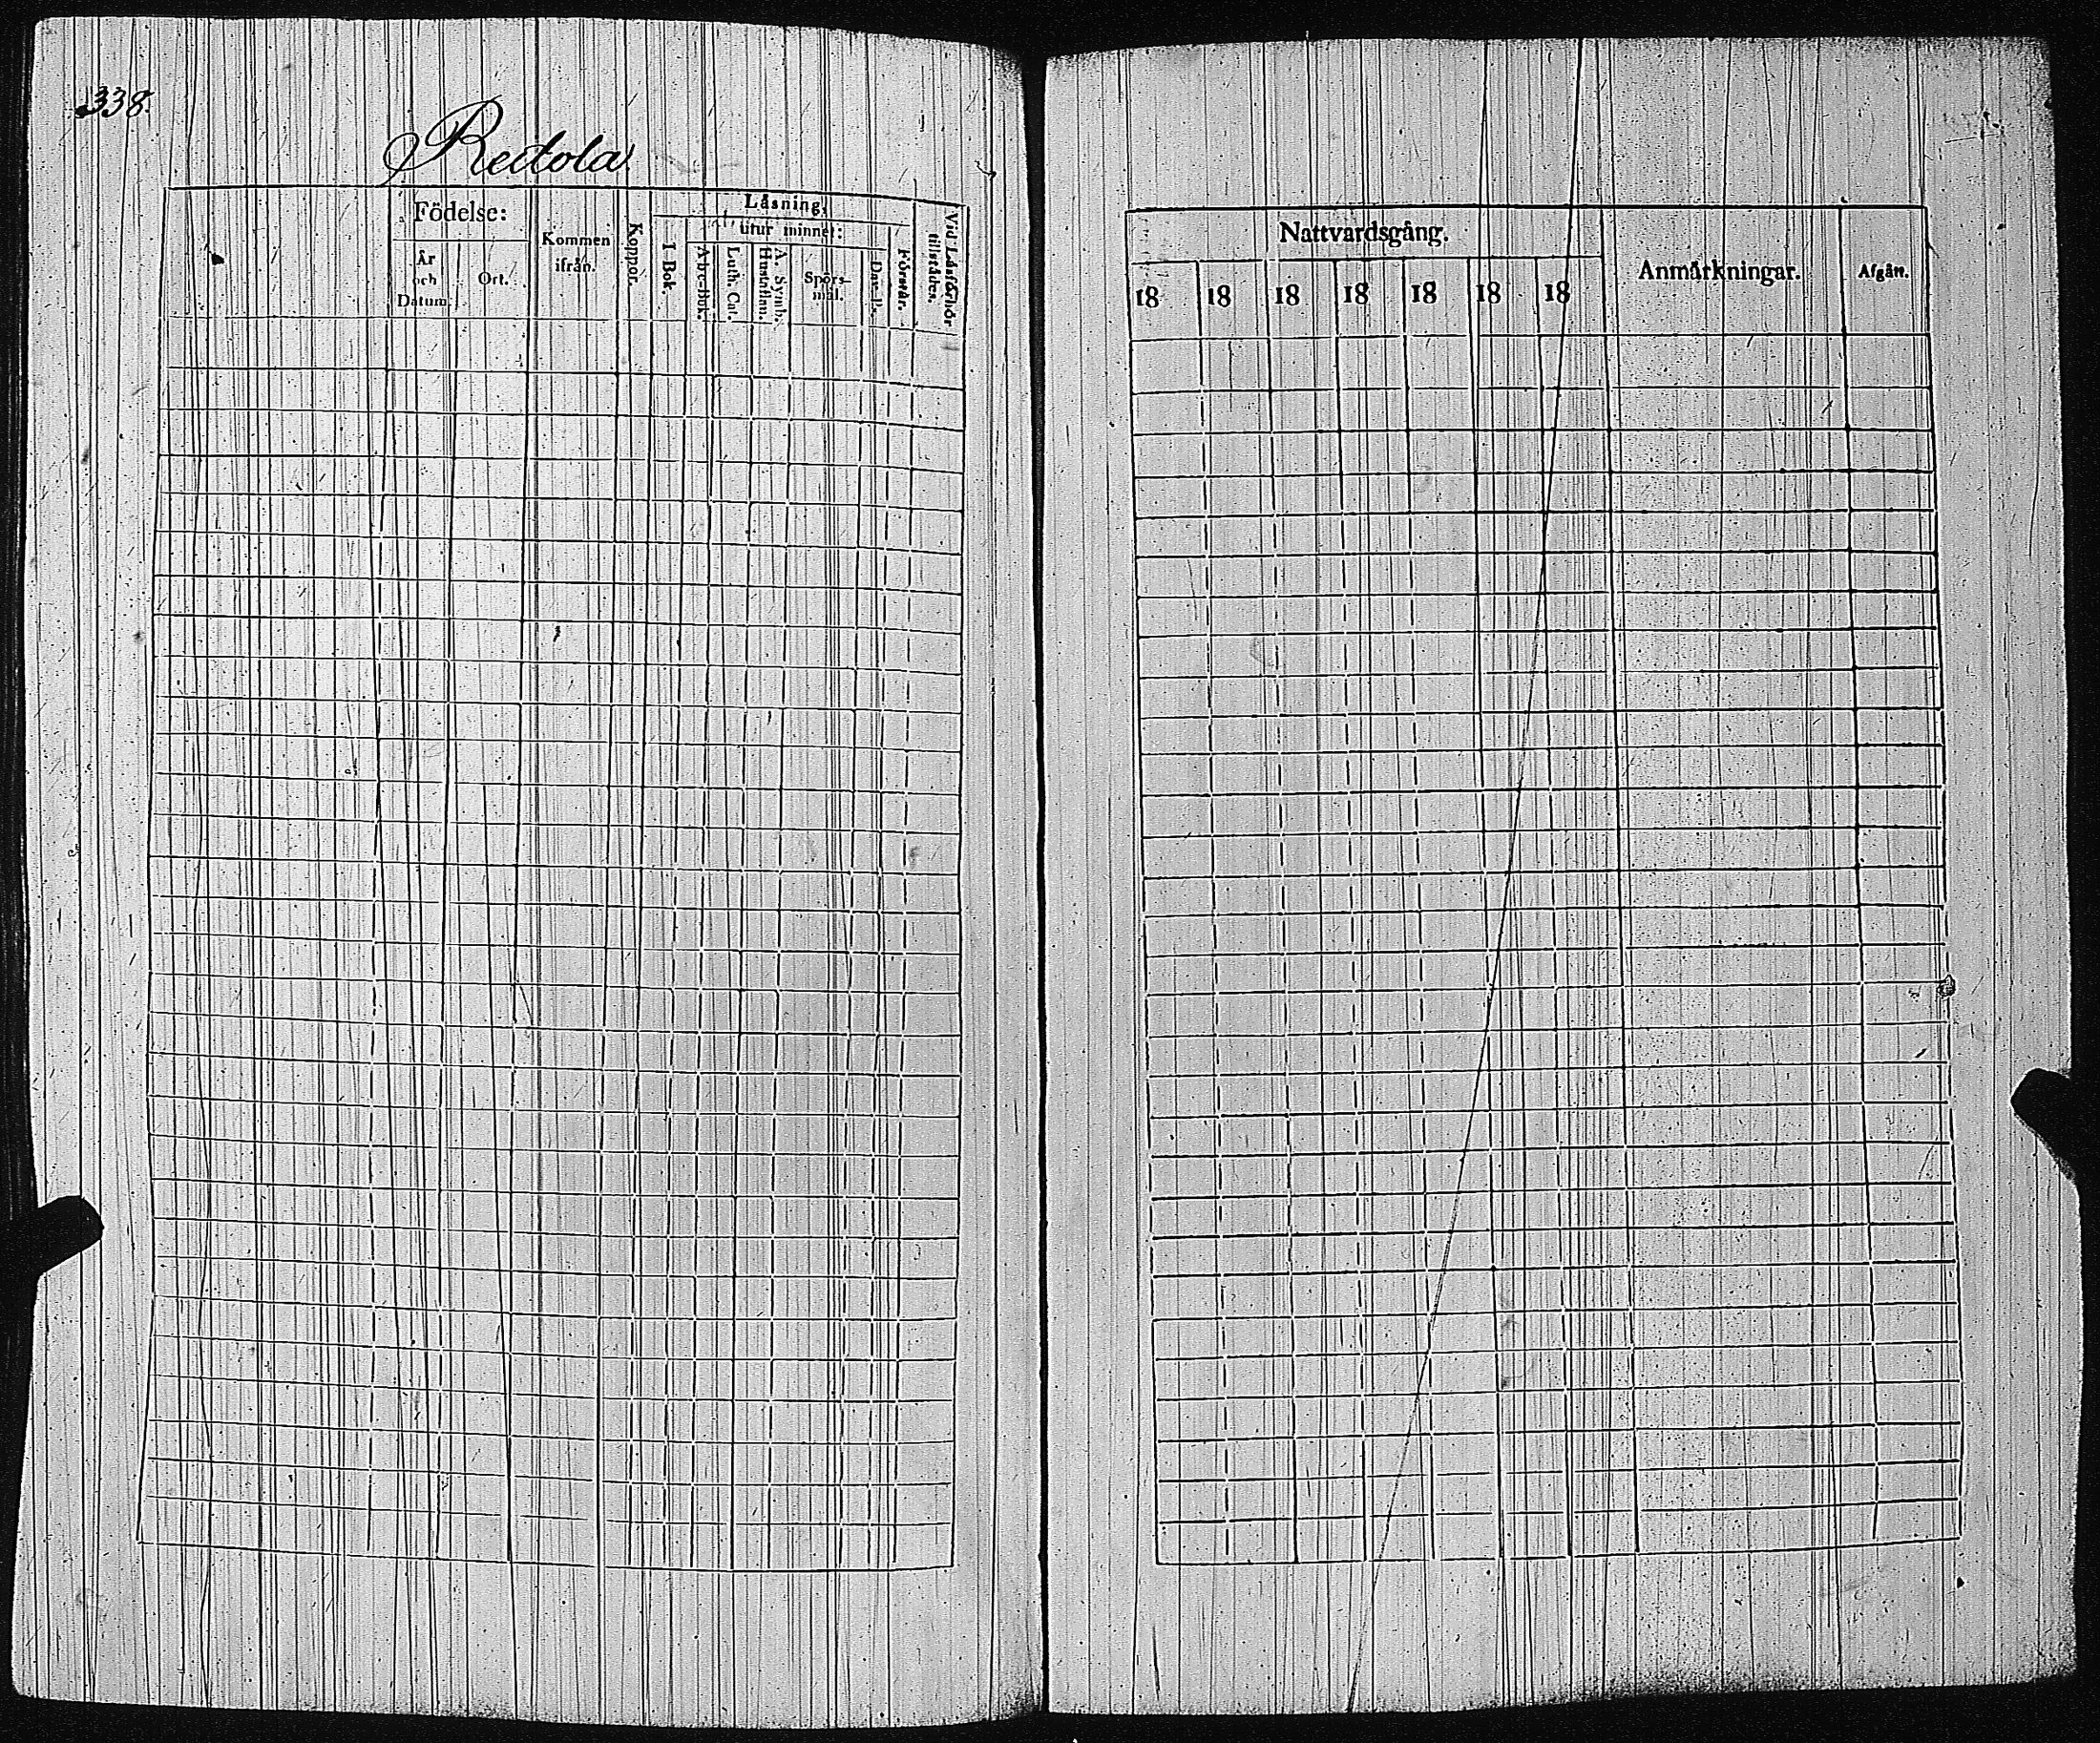 338.
Rectola
Födelse:
År och Datum.
Ort.
Kommen ifrån.
Koppor.
Läsning,
utur minnet:
I Bok.
Abc-Bok.
Luth. Cat.
Hustaflan.
A. Symb.
Spörs-
mål.
Dav. Ps.
Förstår.
Vid Läsförhör
tillstädes.
Nattvardsgång.
18 18 18 18 18 18 18
Anmärkningar.
Afgått.